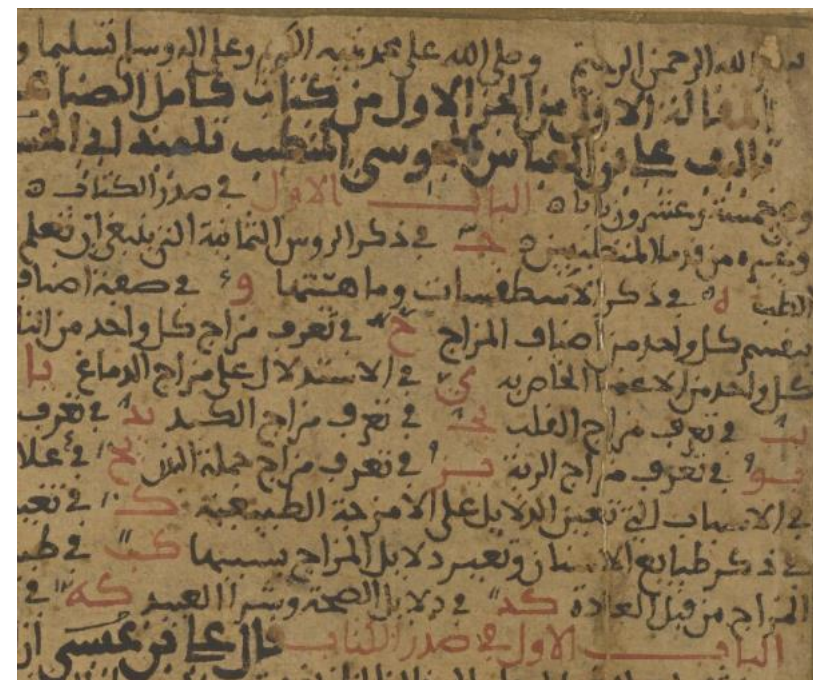 بسم الله الرحمن الرحيم وصلى الله على محمد نبيه الكريم وعلى اله وسلم تسليما
المقالة الاولى من الجز الاول من كتاب كامل الصناعة
تاليف علي بن العباس المجوسي المتطبب تلميذ ابي
وهي خمسة وعشرون بابا ه الباب الاول في صدر الكتاب ه
من قدما المتطببين ه ج في ذكر الروس الثمانية التي ينبغي ان تعلم
الطب ه في ذكر الاسطقسات وما هيتها و في صفة اصناف
كل واحد من اصناف المزاج ح في تعرف مزاج كل واحد من
كل واحد من الاعضا الخاص به ي في الاستدلال على مزاج الدماغ يا
يب في تعرف مزاج القلب يج في تعرف مزاج الكبد يد في تعرف
يو في تعرف مزاج الرية يز في تعرف مزاج جملة البدن يح في
في الاسباب التي تغير الدلايل على الامزجة الطبيعية ك في
في ذكر طبايع الاسنان وتغير دلايل المزاج بسببها كب في
المزاج من قبل العادة كد في دلايل الصحة وشرا العبيد كه في
الباب الاول في صدر الكتاب قال علي بن عيسى